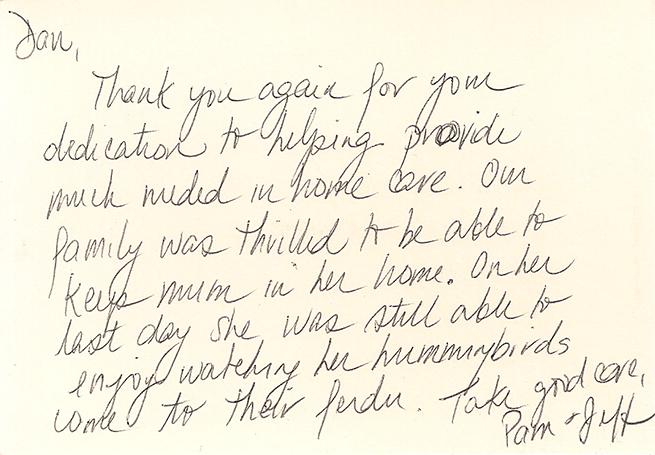 Dan,
Thank you again for your
dedication to helping provide
much needed in home care. Our
family was thrilled to be able to
keep mum in her home. On her
last day she was still able to
enjoy watching her hummingbirds
come to their feeder. Take good care,
Pam & Jeff